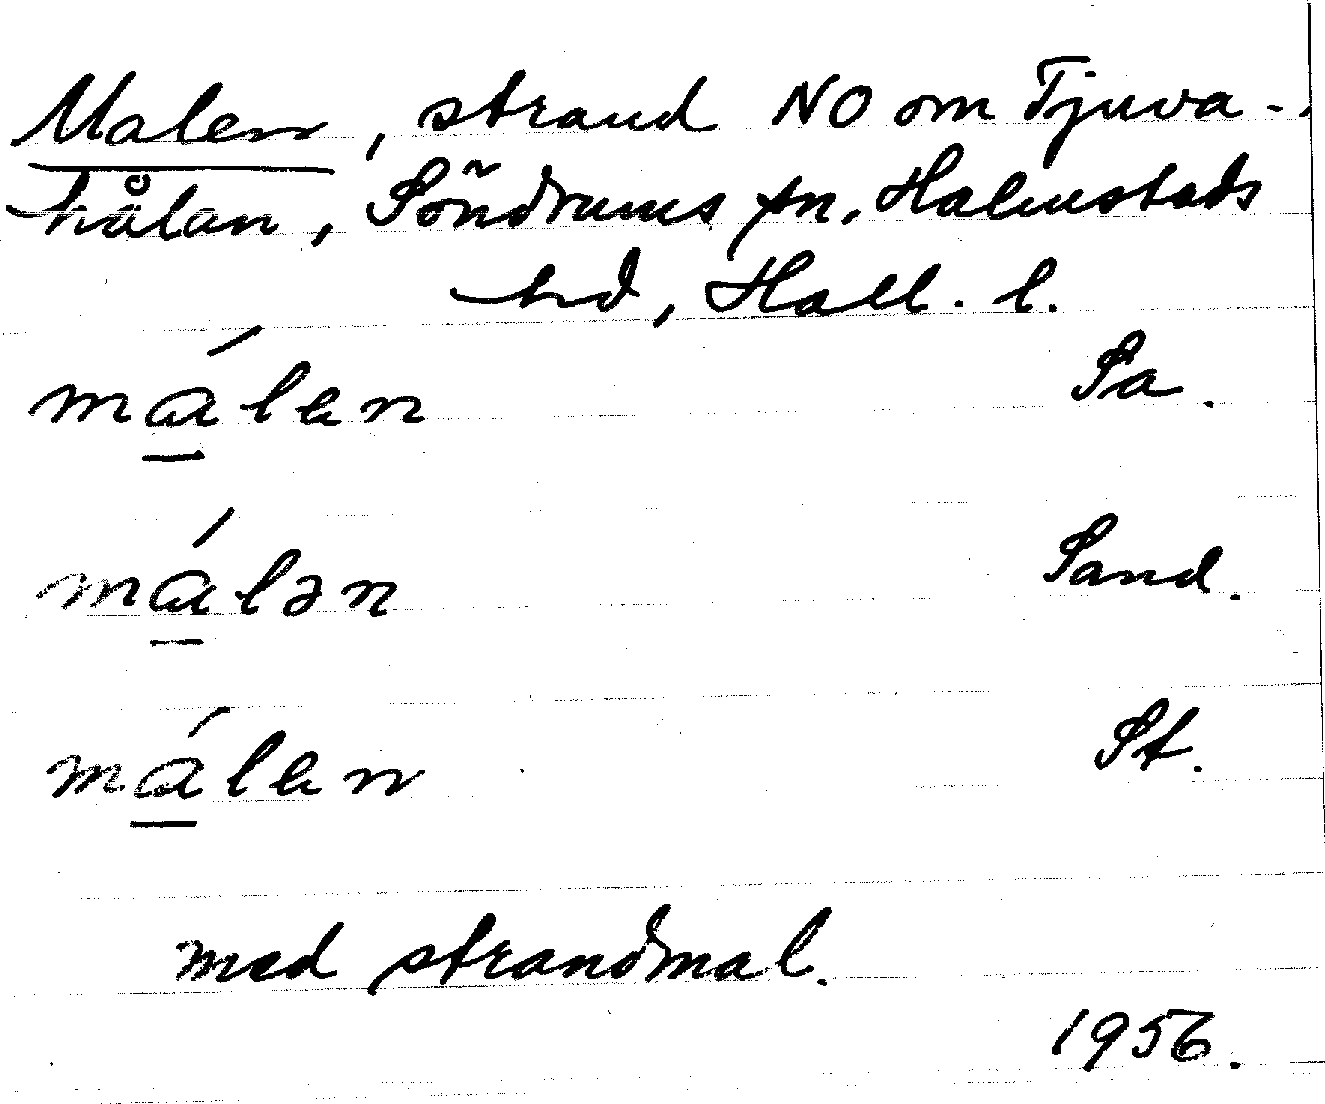 Malen, strand NO om Tjuva-
hålan, Söndrums sn, Halmstads
hd, Hall. l.
málen Sa.
málən Sand.
málen St.
med strandmal.
1956.